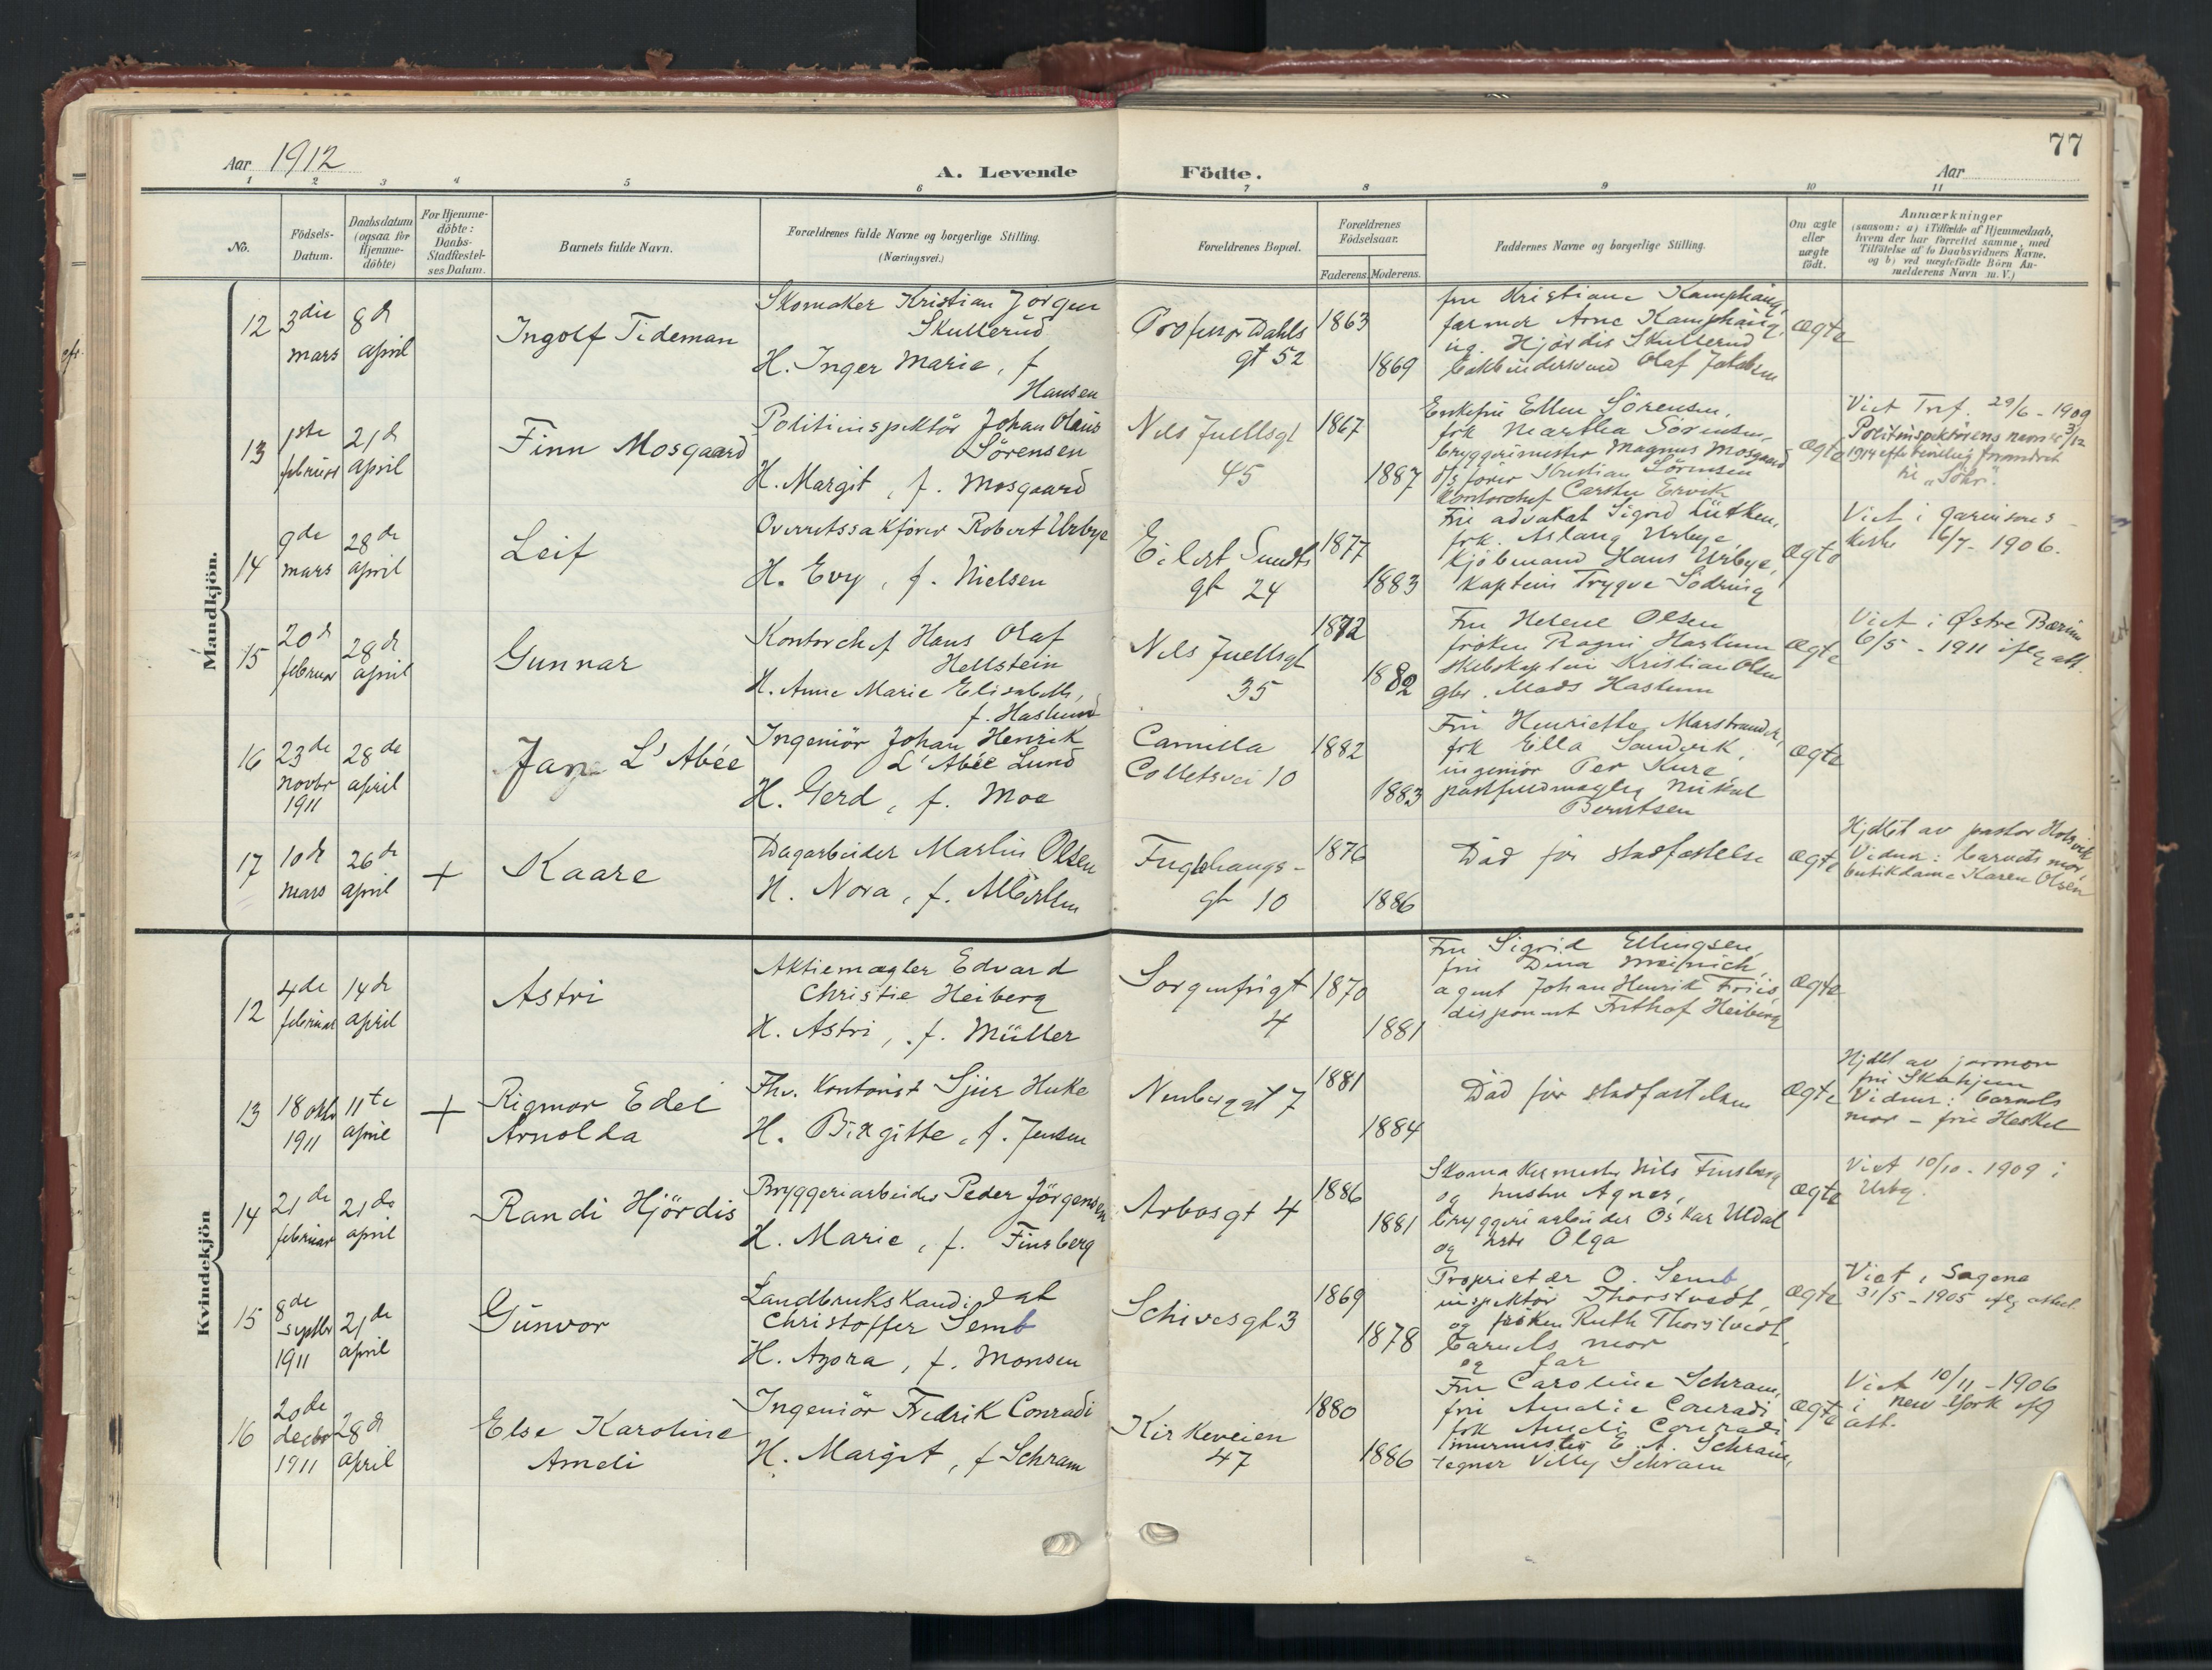 77
Aar 1912
A. Levende
Födte.
Aar
1 2 3 4 5 6 7 8 9 10 11
No.
Födsels-
Datum.
Daabsdatum
(ogsaa for
Hjemme-
döbte)
For Hjemme-
döbte:
Daabs-
Stadfæstel-
ses Datum.
Barnets fulde Navn.
Forældrenes fulde Navne og borgerlige Stilling.
(Næringsvei.)
Forældrenes Bopæl.
Forældrenes
Födselsaar.
Faderens. Moderens.
Faddernes Navne og borgerlige Stilling.
Om ægte
eller
uægte
födt.
Anmærkninger
(saasom: a) i Tilfælde af Hjemmedaab,
hvem der har forrettet samme, med
Tilföielse af to Daabsvidners Navne.
og b) ved uægtefödte Börn An-
melderens Navn m. V.)
Mandkjön.
12
3die
mars
8de
april
Ingolf Tideman
Skomaker Kristian Jörgen
Skullerud
H. Inger Marie, f
Hansen
Professor Dahls
gt 52
1863
1869
fru Kristiane Kamphaug,
farmer Arne Kamphaug,
ug. Hjördis Skullerud
Olaf Jakobsen
ægte
13
1ste
februar
21de
april
Finn Mosgaard
Politiinspektör Johan Olaus
Sörensen
H. Margit, f. Mosgaard
Nils Juellsgt
45
1867
1887
Enkefru Ellen Sörensen,
frk Martha Sörensen,
bryggerimester Magnus Mosgaard
förer Kristian Sörensen
Kontorchef Carsten Ervik
ægte
Viet Tref. 29/6 - 1909
Politiinspektörens navn er 3/12
1914 efter bevilling forandret
til "Söhr".
14
9de
mars
28de
april
Leif
Overretssakförer Robert Urbye
H. Evy, f. Nielsen
Eilert Sundts
gt 24
1877
1883
Fru advokat Sigrid Lütken,
frk. Aslaug Urbye,
Kjöbmand Hans Urbye,
Kaptein Trygve Södring
ægte
Viet i Garnisons-
kirke 16/7 - 1906.
15
20de
februar
28de
april
Gunnar
Kontorchef Hans Olaf
Hellstein
H. Anne Marie Elisabeth,
f. Haslund
Nils Juellsgt
35
1872
1882
Fru Helene Olsen
fröken Ragni Haslum
skibskaptein Kristian Olsen
gbr. Mads Haslum
ægte
Viet i Østre Bærum
6/5 - 1911 iflg att.
16
23de
novbr
1911
28de
april
L'Abée
Ingeniör Johan Henrik
L'Abée Lund
H. Gerd, f. Moe
Camilla
Colletsvei 10
1882
1883
Fru Henriette Marstrander,
frk Ella Sandvik,
ingeniör Per Kure
postfuldmægtig
Berntsen
ægte
17
10de
mars
26de
april
+
Kaare
Dagarbeider Martin Olsen
H. Nora, f. Albertsen
Fuglehaugs-
gt 10
1876
1886
Död för stadfæstelse
ægte
Hjdbt av pastor Holsvik
Vidner: barnets mor,
butikdame Karen Olsen
Kvindekjön
12
4de
februar
14de
april
Astri
Aktiemægler Edvard
Christie Heiberg
H. Astri, f. Müller
Sorgenfrigt
4
1870
1881
Fru Sigrid Ellingsen,
fru Dina
agent Johan Henrik Friis,
disponent Frithof Heiberg
ægte
13
18 oktbr
1911
11te
april
+
Rigmor Edel
Arnolda
Fhv. Kontorist Sjur Huke
H. Birgitte, f. Jensen
Neuberggt 7
1881
1884
Död för stadfæstelsen
ægte
Hjdbt av jormor
fru
Vidner: barnets
mor - fru
14
21de
februar
21de
april
Randi Hjördis
Bryggeriarbeider Peder Jörgensen
H. Marie, f. Finsberg
Arbosgt 4
1886
1881
Skomakermester Nils Finsberg
og hustru Agnes,
bryggeriarbeider Oskar Uldal
og hstr Olga
ægte
Viet 10/10 - 1909 i
Urbg.
15
8de
septbr
1911
21de
april
Gunvor
Landbrukskandidat
Christoffer Semb
H. Agora, f. Monsen
Schivesgt 3
1869
1878
Proprietær O. Semb
inspektör Thorstvedt,
og fröken Ruth Thorstvedt,
barnets mor
og far
ægte
Viet i Sagene
31/5 - 1905 iflg attest.
16
20de
decbr
1911
28de
april
Else Karoline
Ameli
Ingeniör Fredrik Conradi
H. Margit, f Schram
Kirkeveien
47
1880
1886
Fru Caroline Schram,
fru Amalie Conradi
frk Ameli Conradi
murmester E. A. Schram,
tegner Villy Schram
ægte
Viet 10/11 - 1906
i New-York iflg
att.